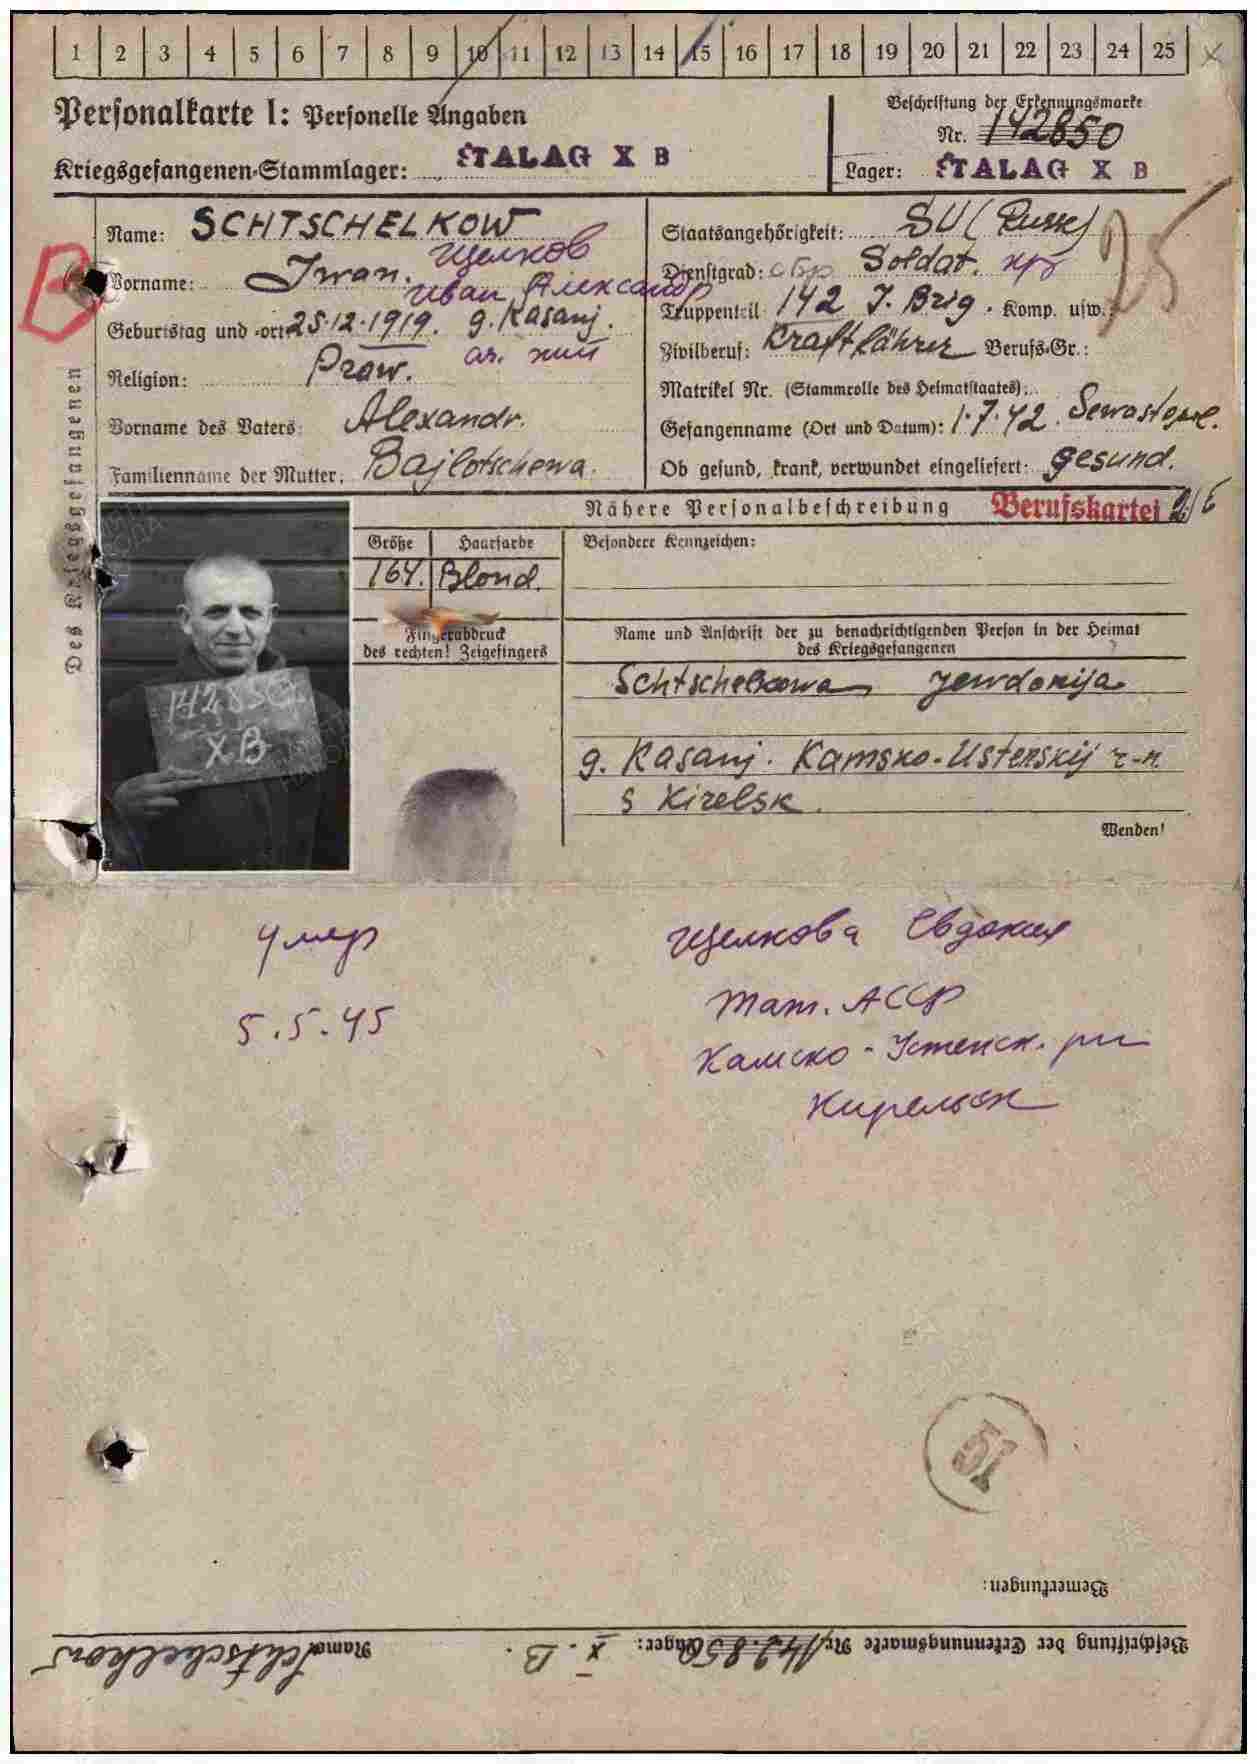 1 2 3 4 5 6 7 8 9 10 11 12 13 14 15 16 17 18 19 20 21 22 23 24 25
Personalkarte I: Personelle Angaben
Kriegsgefangenen-Stammlager: STALAG X B
Beschriftung der Erkennungsmarke
Nr. 142850
Lager: STALAG X B
Name: SCHTSCHELKOW
Щелков
Vorname: Iwan.
Иван Александр
Geburtstag und -ort: 25.12.1919. g. Kasanj.
Religion: Praw.
Vorname des Vaters: Alexandr.
Familienname der Mutter: Bajlotschewa.
Staatsangehörigkeit: SU (Russe)
Dienstgrad: Soldat.
Truppenteil: 142 J. Brig. Komp. usw.:
Zivilberuf: Kraftfährer Berufs-Gr.:
Matrikel Nr. (Stammrolle des Heimatstaates):
Gefangenname (Ort und Datum): 1.7.42. Sewastopol.
Ob gesund, krank, verwundet eingeliefert: gesund.
25
B
Des Kriegsgefangenen
Nähere Personalbeschreibung
Berufskartei
Größe Haarfarbe
164. Blond.
Fingerabdruck
des rechten! Zeigefingers
Besondere Kennzeichen:
Name und Anschrift der zu benachrichtigenden Person in der Heimat
des Kriegsgefangenen
Schtschelkowa Jewdokija
g. Kasanj. Kamsko-Ustenskij r-n.
s Kirelsk.
Wenden!
142850
X B
умер
5.5.45
Щелкова Евдокия
Тат. АССР
Камско-Устенск. рн
Кирельск
51
Bemerkungen:
Beschriftung der Erkennungsmarke Nr. 142.850 Lager: X. B.
Name: Schtschelkow